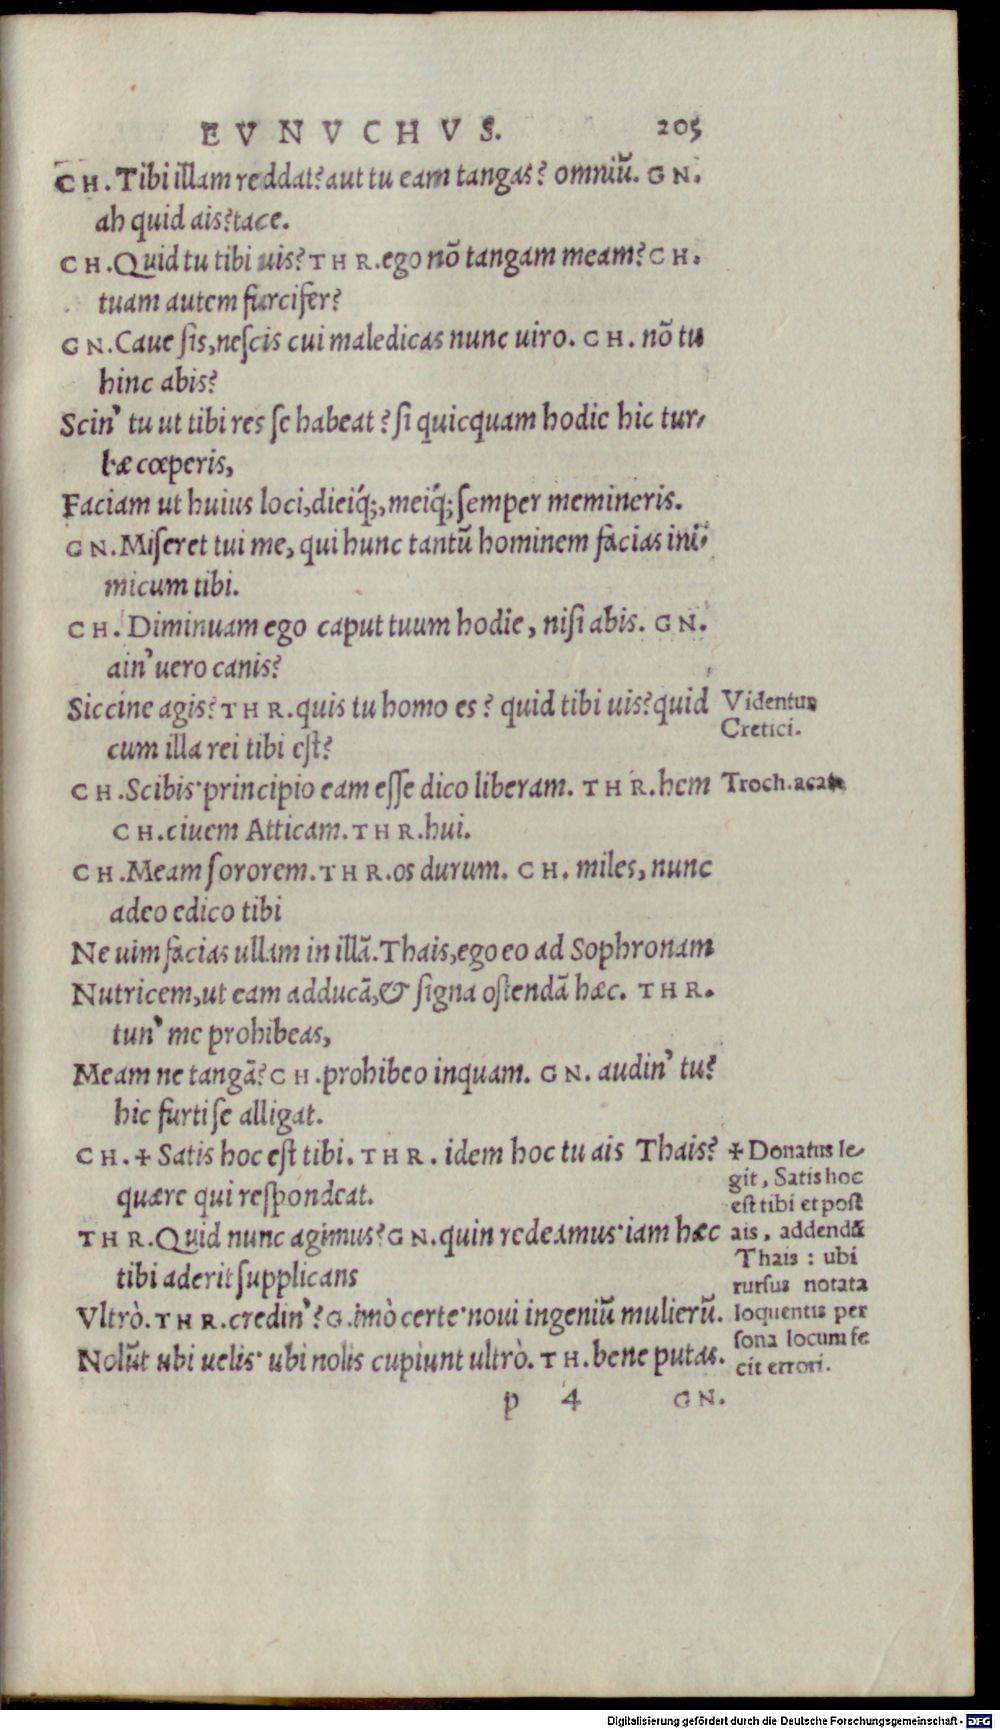 EVNVCHVS. 205
CH. Tibi illam reddat? aut tu eam tangas? omniū. GN.
ah quid ais? tace.
CH. Quid tu tibi uis? THR. ego nō tangam meam? CH.
tuam autem furcifer?
GN. Caue sis, nescis cui maledicas nunc uiro. CH. nō tu
hinc abis?
Scin' tu ut tibi res se habeat? si quicquam hodie hic tur-
bæ cœperis,
Faciam ut huius loci, dieiq́;, meiq́; semper memineris.
GN. Miseret tui me, qui hunc tantū hominem facias ini-
micum tibi.
CH. Diminuam ego caput tuum hodie, nisi abis. GN.
ain' uero canis?
Siccine agis? THR. quis tu homo es? quid tibi uis? quid
cum illa rei tibi est?
Videntur
Cretici.
CH. Scibis· principio eam esse dico liberam. THR. hem
CH. ciuem Atticam. THR. hui.
Troch. acat
CH. Meam sororem. THR. os durum. CH. miles, nunc
adeo edico tibi
Ne uim facias ullam in illā. Thais, ego eo ad Sophronam
Nutricem, ut eam adducā, & signa ostendā hæc. THR.
tun' me prohibeas,
Meam ne tangā? CH. prohibeo inquam. GN. audin' tu?
hic furti se alligat.
CH. ✢ Satis hoc est tibi. THR. idem hoc tu ais Thais?
quære qui respondeat.
THR. Quid nunc agimus? GN. quin redeamus· iam hæc
tibi aderit supplicans
Vltrò. THR. credin'? G. imò certe· noui ingeniū mulierū.
Nolūt ubi uelis· ubi nolis cupiunt ultrò. TH. bene putas.
✢ Donatus le-
git, Satis hoc
est tibi et post
ais, addendū
Thais : ubi
rursus notata
loquentis per
sona locum fe
cit errori.
p 4 GN.
Digitalisierung gefördert durch die Deutsche Forschungsgemeinschaft - DFG